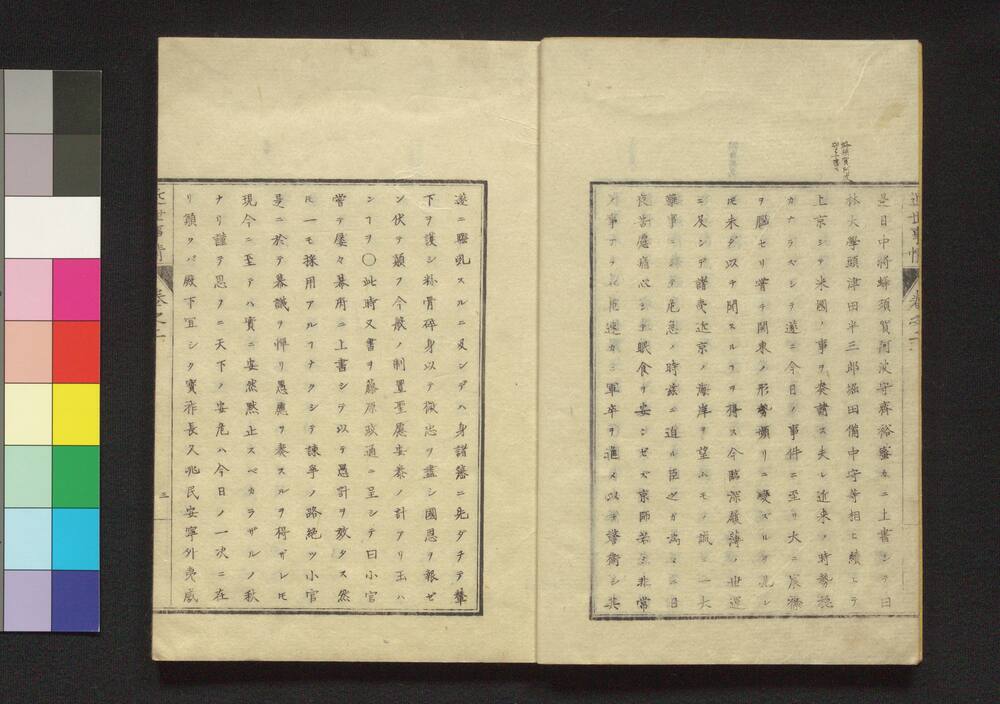 近世事情 巻之二
是日中将蜂須賀阿波守斉裕密カニ上書シテ曰
林大学頭津田半三郎堀田備中守等相ヒ続ヒテ
上京シテ米國ノ事ヲ奏請ス夫レ近来ノ時勢穏
カナラズシテ遂ニ今日ノ事件ニ至リ大ニ宸襟
ヲ悩セリ嘗テ関東ノ形勢頻リニ変ズルヲ見レ
ㇳモ未ダ以テ聞スルヿヲ得ス今臨深履薄ノ世運
ニ及ンデ諸夷近京ノ海岸ヲ望ムモノ誠ニ一大
難事ニシテ危急ノ時茲ニ迫ル臣之ガ為メニ日
夜苦慮痛心シテ眠食ヲ安ンゼズ京師若シ非常
ノ事アラ
速カニ軍卒ヲ進メ以テ警衛シ其
遂ニ騒乱スルニ及ンデハ身諸藩ニ先ダチテ輦
下ヲ護シ粉骨砕身以テ微忠ヲ盡シ國恩ヲ報ゼ
ン伏テ願フ今般ノ制置聖慮安泰ノ計アリ玉ハ
ンヿヲ〇此時又書ヲ藤原政通ニ呈シテ曰小官
嘗テ屡々幕府ニ上書シテ以テ愚計ヲ效タス然
ㇳモ一モ採用アルヿナクシテ諫争ノ路絶ツ小官
是ニ於テ幕議ヲ憚リ愚慮ヲ奏スルヲ得ザレㇳモ
現今ニ至テハ實ニ安然黙止スベカラザルノ秋
ナリ謹テ思フニ天下ノ安危ハ今日ノ一决ニ在
リ願クバ殿下宜シク寳祚長久兆民安寧外夷威
近世事情 巻之二
三